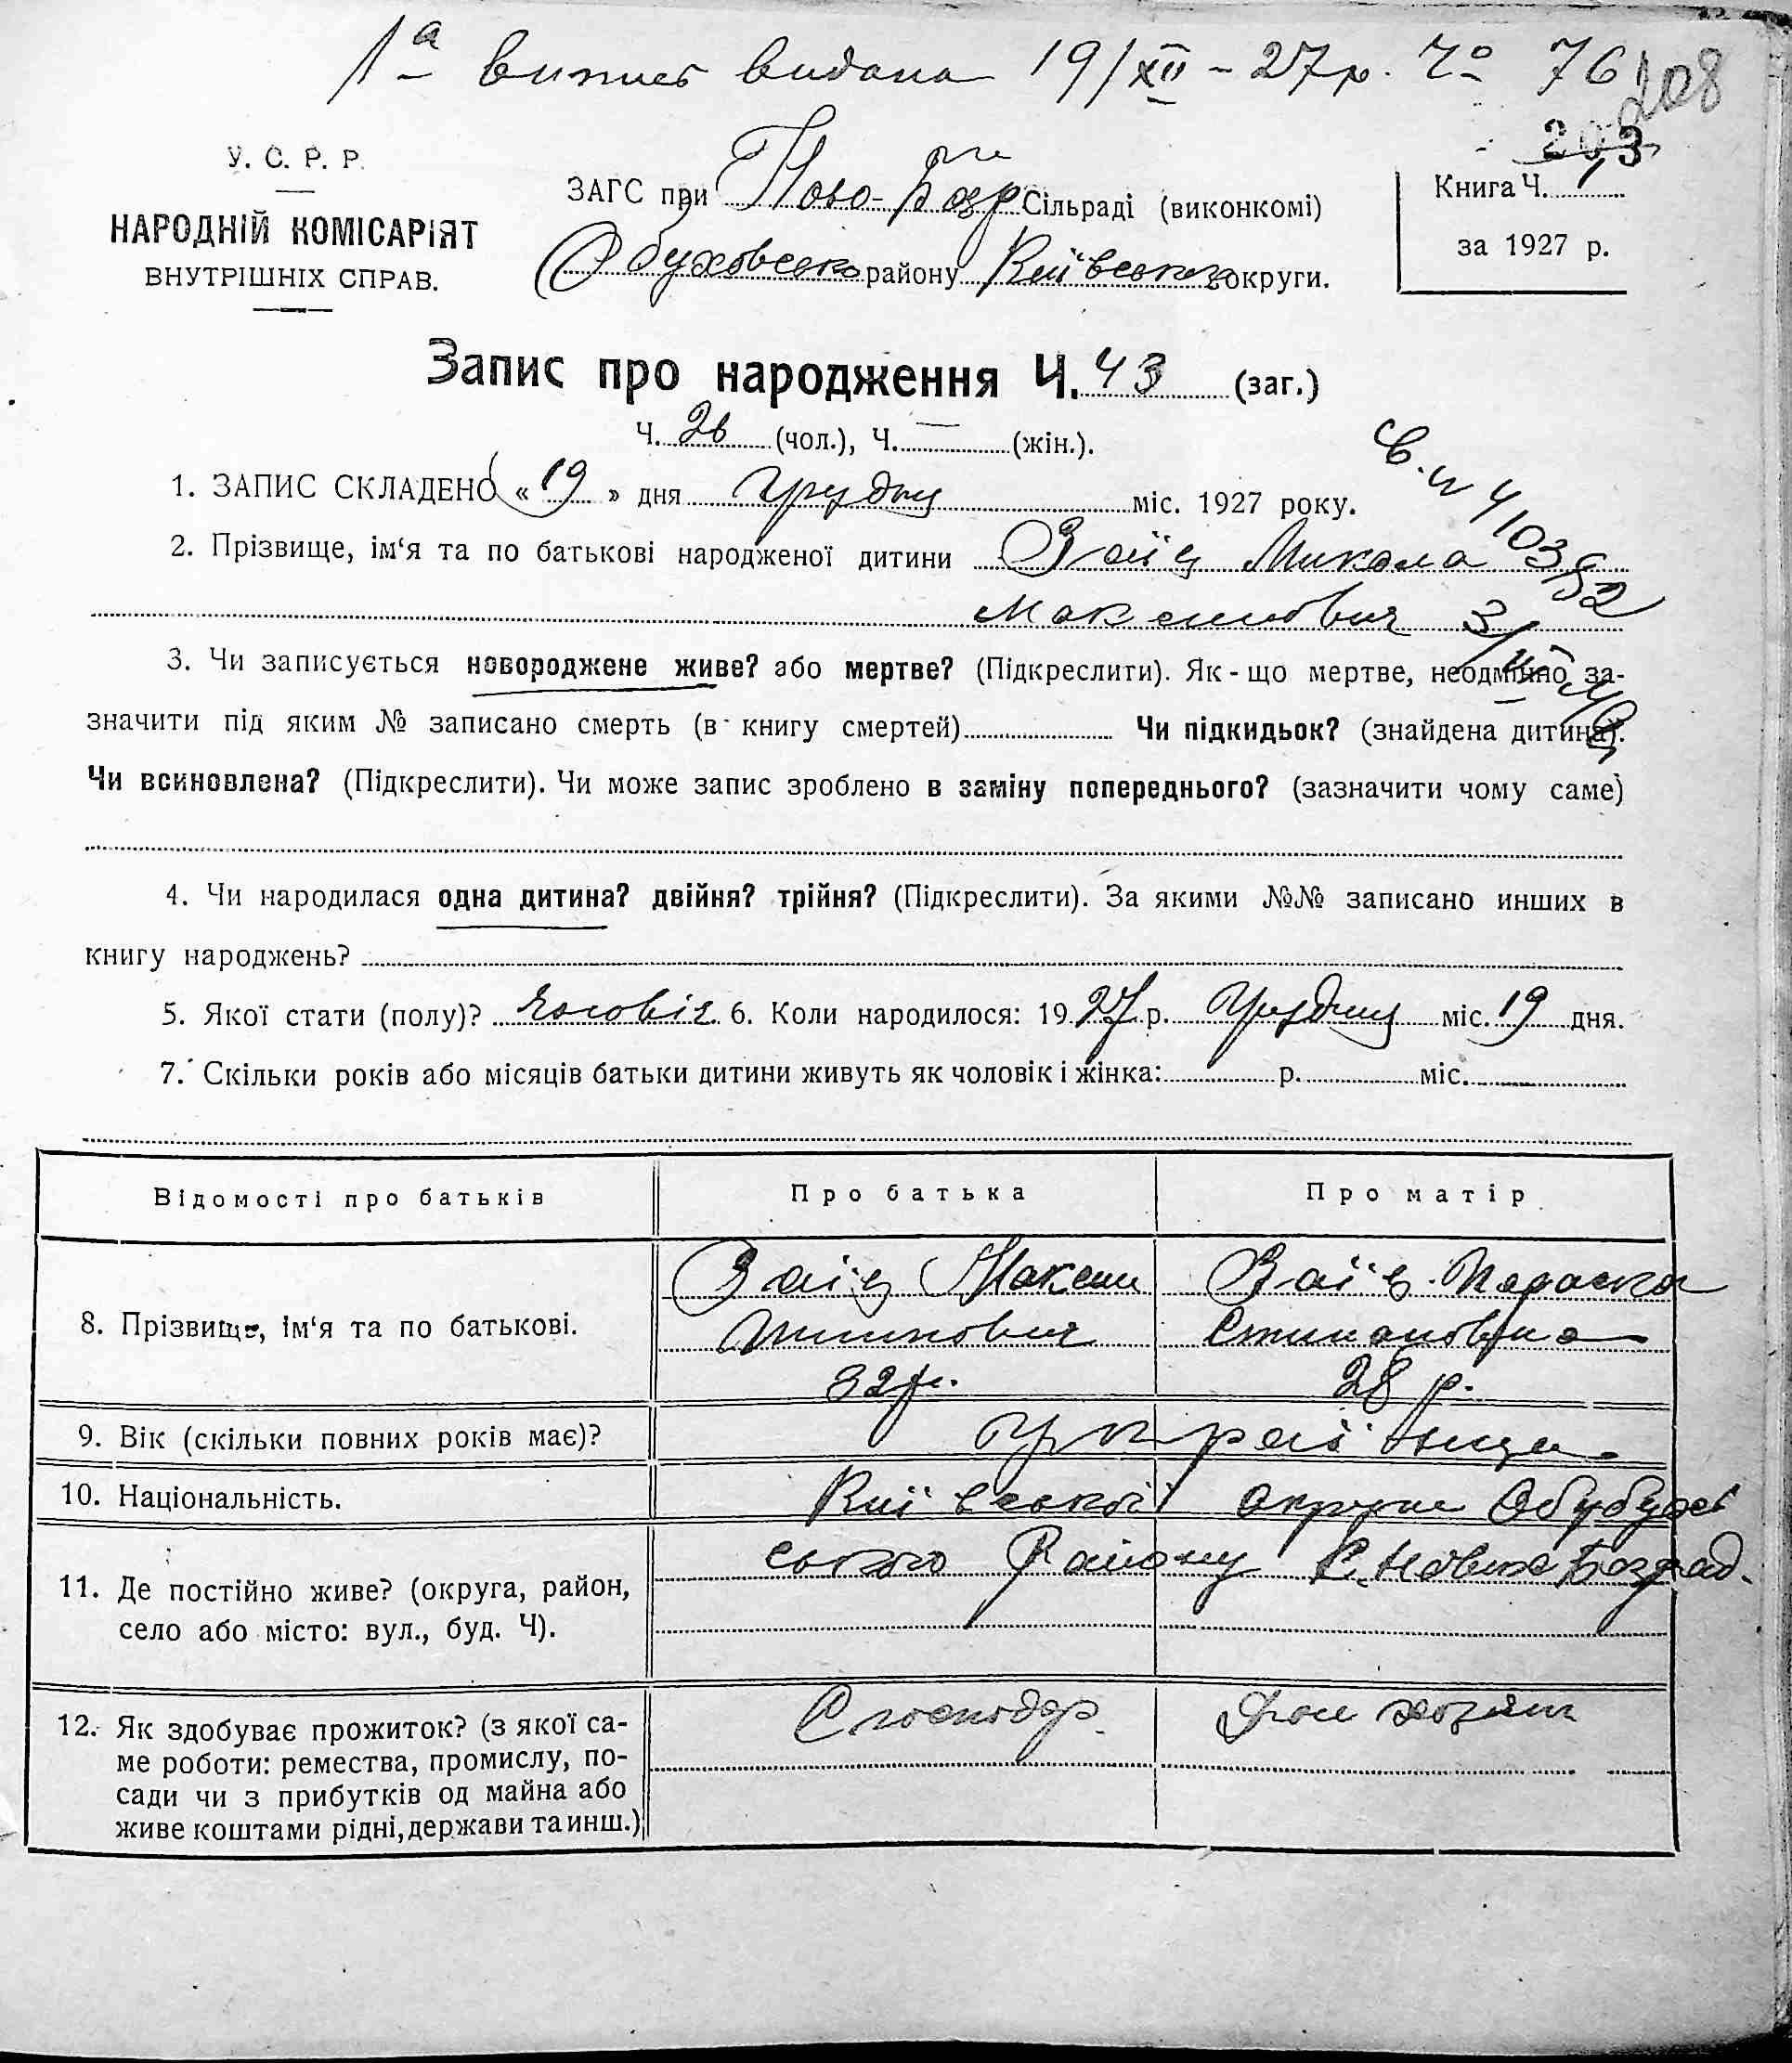 1а випись видана 19/XII – 27 р. Чо 76
208
203
У. С. Р. Р.
НАРОДНІЙ КОМІСАРІЯТ
ВНУТРІШНІХ СПРАВ.
ЗАГС при Ново-Безр Сільраді (виконкомі)
Обуховсько району Київсько округи.
Книга Ч. 1
за 1927 р.
Запис про народження Ч. 43 (заг.)
Ч. 26 (чол.), Ч. — (жін.).
1. ЗАПИС СКЛАДЕНО « 19 » дня Грудня міс. 1927 року.
2. Прізвище, ім‘я та по батькові народженої дитини Заїц Микола
Максимович
3. Чи записується новороджене живе? або мертве? (Підкреслити). Як - що мертве, неодмінно за-
значити під яким № записано смерть (в книгу смертей) Чи підкидьок? (знайдена дитина).
Чи всиновлена? (Підкреслити). Чи може запис зроблено в заміну попереднього? (зазначити чому саме)
4. Чи народилася одна дитина? двійня? трійня? (Підкреслити). За якими №№ записано инших в
книгу народжень?
5. Якої стати (полу)? Чоловіч. 6. Коли народилося: 19 27 р. Грудня міс. 19 дня.
7. Скільки років або місяців батьки дитини живуть як чоловік і жінка: р. міс.
Відомості про батьків Про батька Про матір
8. Прізвище, ім‘я та по батькові.
Заїц Максим Заїц Параска
32 р. 28 р.
9. Вік (скільки повних років має)?
Українци
10. Національність.
Київської округи
11. Де постійно живе? (округа, район,
село або місто: вул., буд. Ч).
ського Району С. Нових Безрад.
12. Як здобуває прожиток? (з якої са-
ме роботи: ремества, промислу, по-
сади чи з прибутків од майна або
живе коштами рідні, держави та инш.)
С господар. Дом хозяин